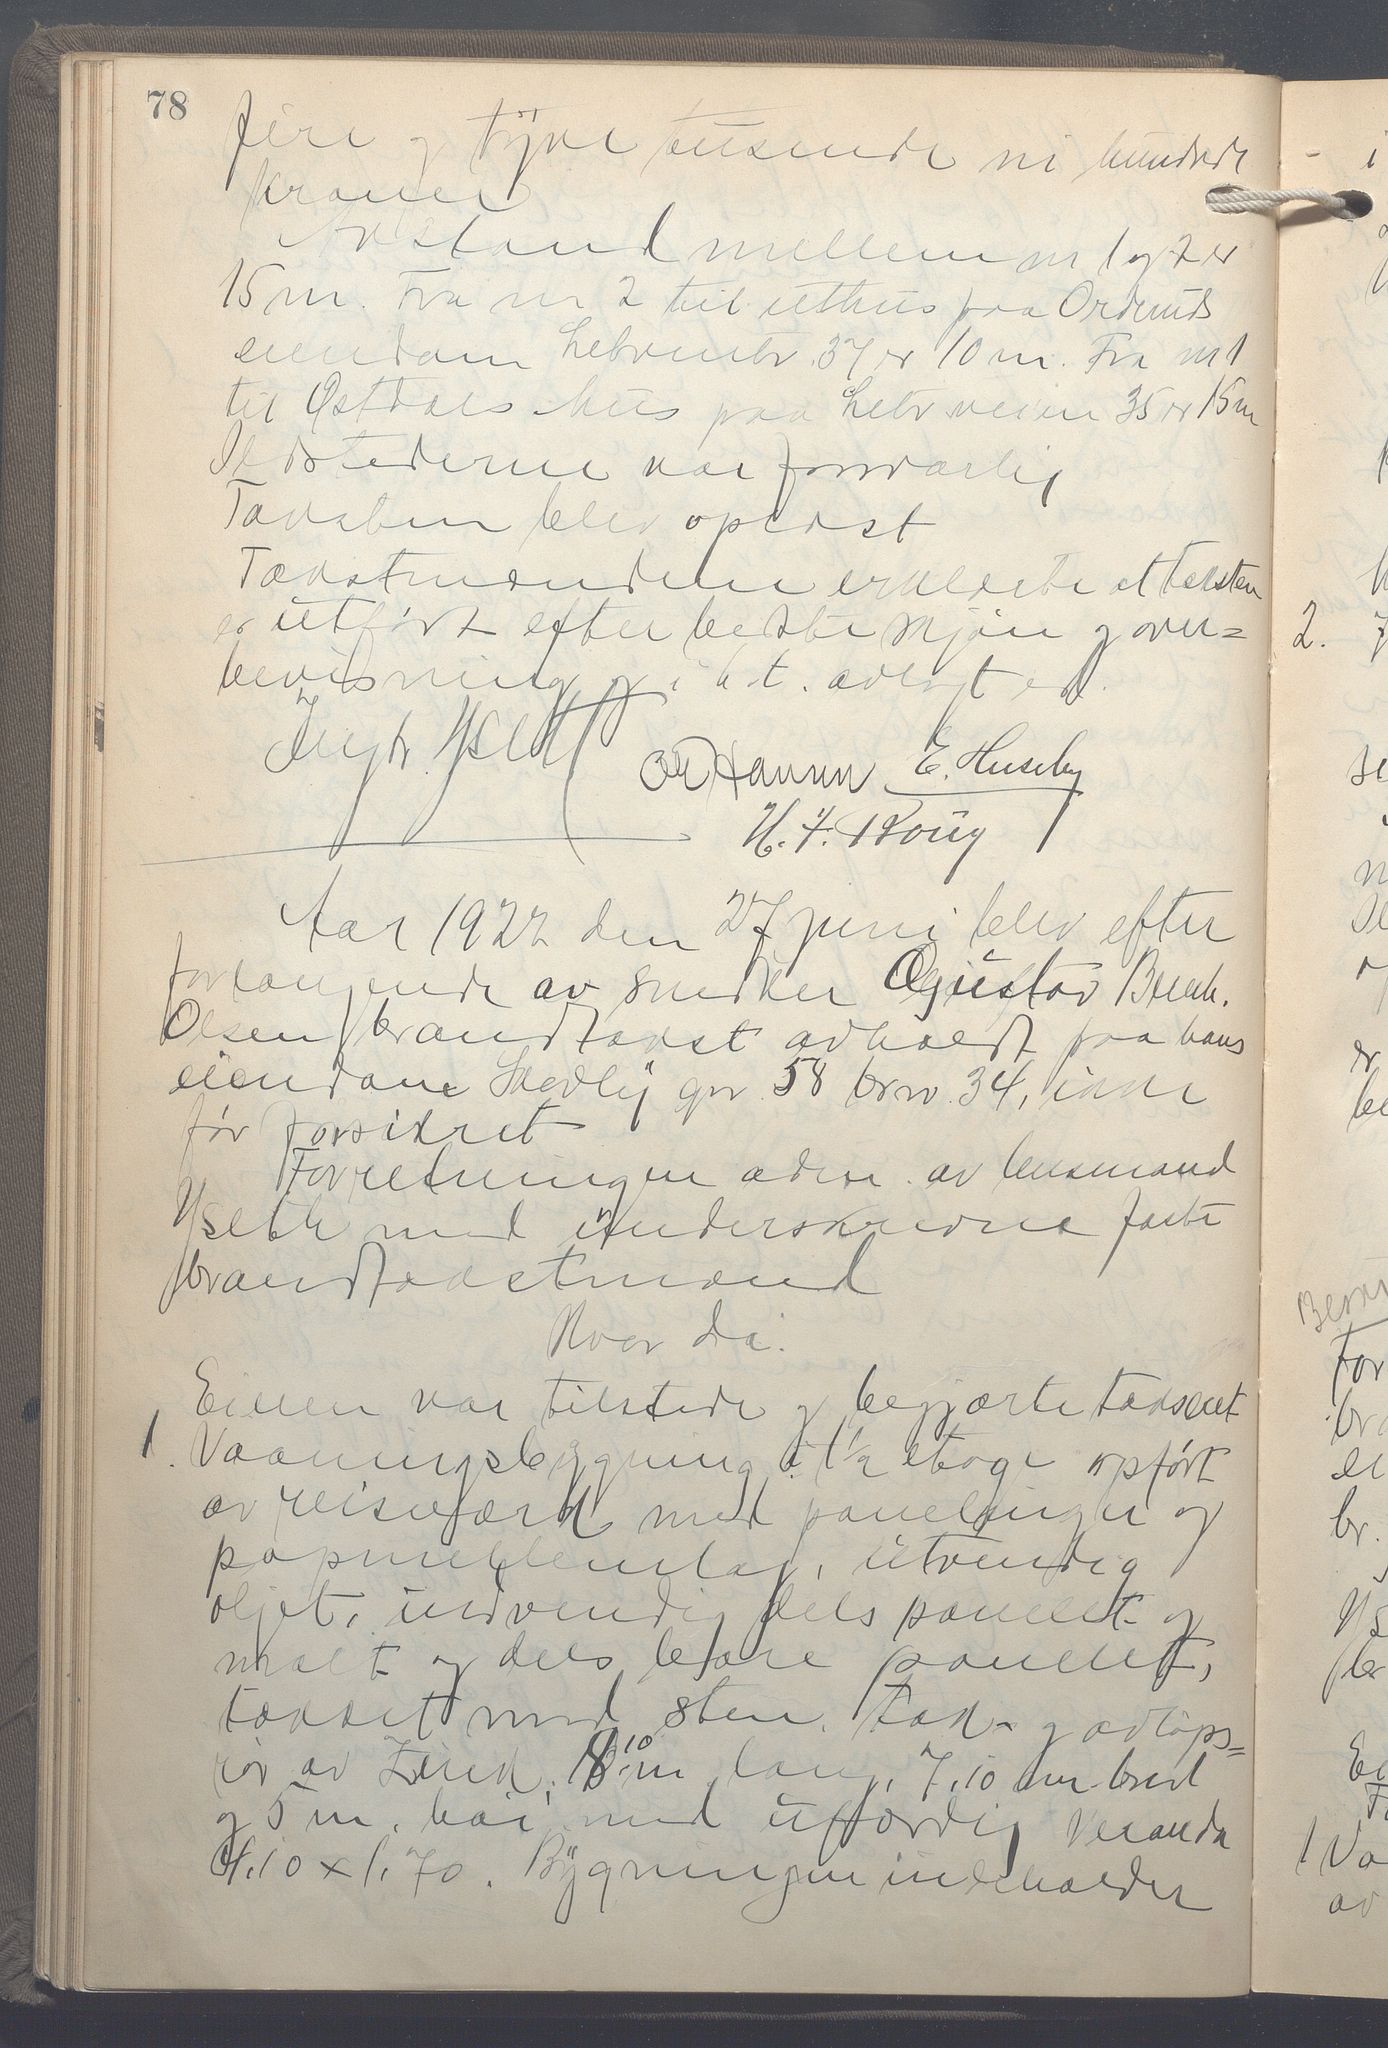 78
fire og tyve tusende ni hundrede
kroner
Avstand mellem nr 1 og 2 er
15 m. Fra nr 2 til uthus paa Orderuds
eiendom 37 er 10 m. Fra nr 1
til Østdals hus paa veien 35 er 15 m
Ildstederne var forsvarlig
Taksten blev oplæst
Takstmændene erklærte at taksten
er utført efter bedste skjön og over=
bevisning og i h. t. avlagt ed.
E. Huseby
Hansen
H. F. Krog
Aar 1922 den 27 juni blev efter
forlangende av snedker Gustav
Olsen brandtakst avholdt paa hans
eiendom gnr 58 brnr. 34, ikke
før forsikret
Forretningen adm. av lensmand
Ilseth med underskrevne faste
brandtakstmænd
Hvor da:
Eieren var tilstede og begjærte takseret
1. Vaaningsbygning i 1½ etage opført
av reisværk med panelinger og
papmellemlag, utvendig
oljet, indvendig dels panelt og
malt og dels bare panelt,
tækket med sten. Tak- og avløps=
rør av Zink, 8.10 m lang, 7,10 m bred
og 5 m. høi med uferdig Veranda
4,10 x 1,70. Bygningen indeholder
2.
er
br.
av